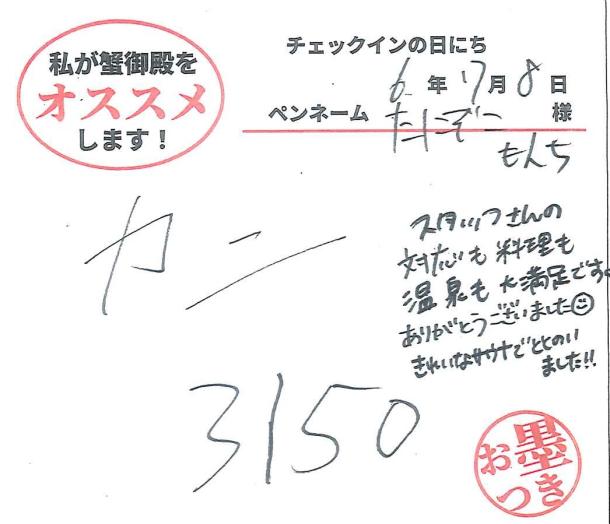 私が蟹御殿を
オススメ
します！
チェックインの日にち
6年 7月 8日
ペンネーム たけぞこ 様
もんち
カニ
3150
スタッフさんの
対応も料理も
温泉も大満足です。
ありがとうございました☺
きれいなサウナでととのい
ました!!
お墨
つき